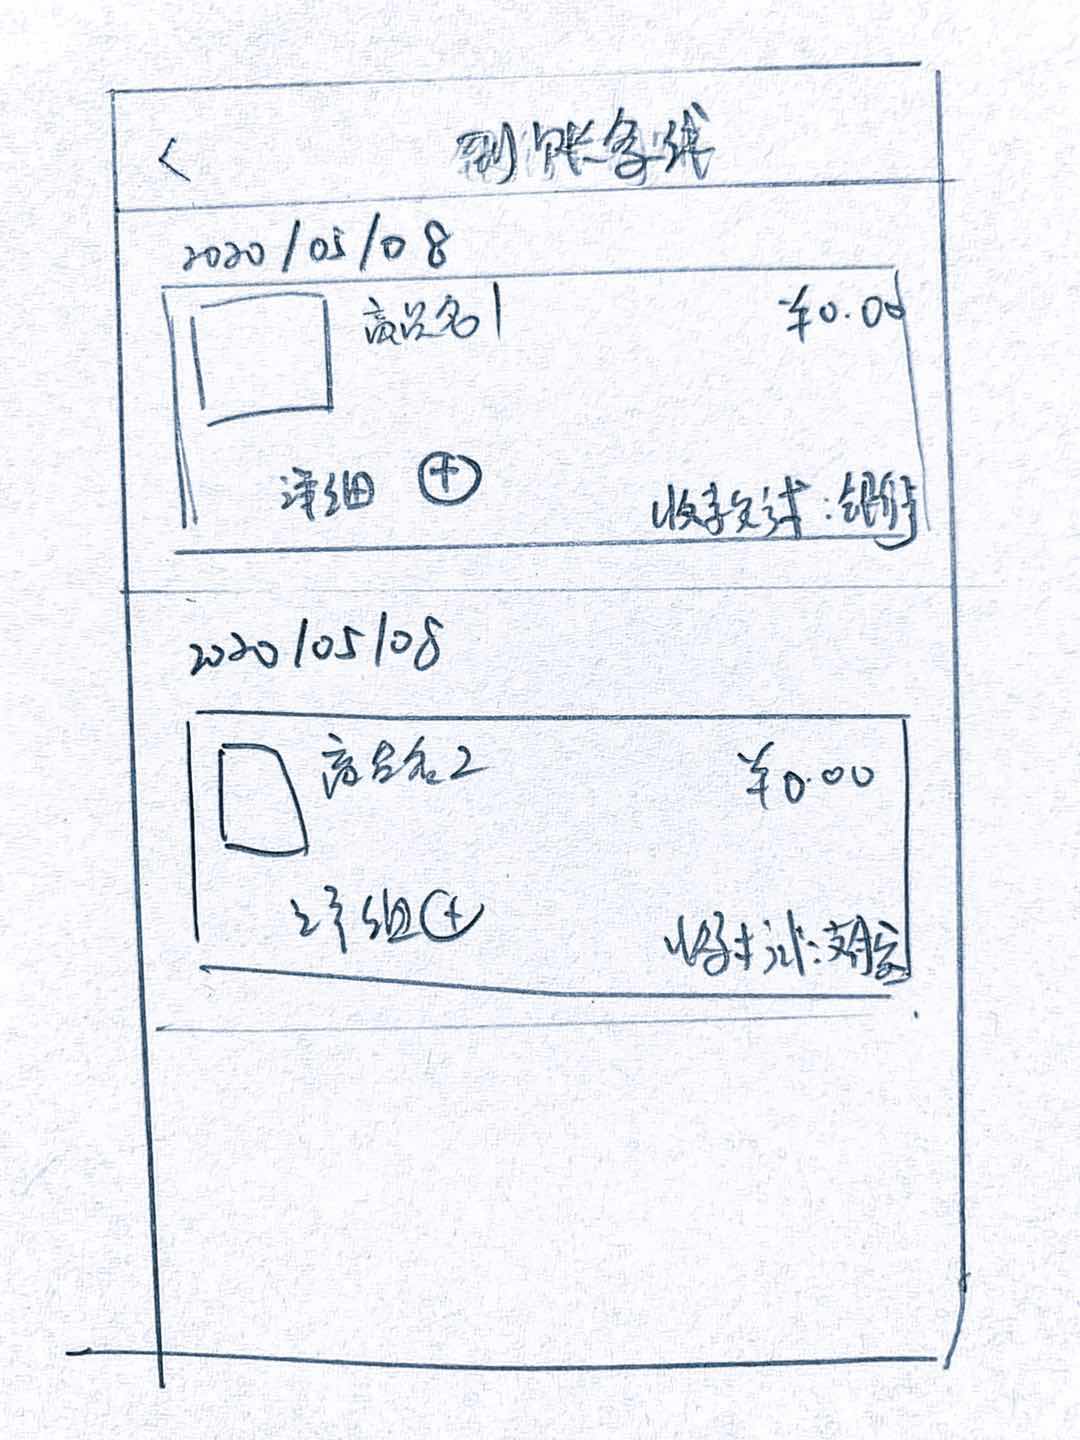 <
到账条线
2020/05/08
商品名1
¥0.00
详细 +
收款方式:银行
2020/05/08
商品名2
¥0.00
详细 +